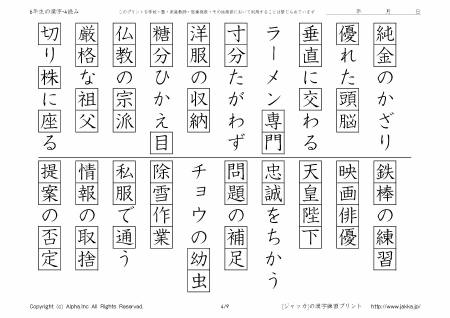 6年生の漢字-4読み
このプリントを学校・塾・家庭教師・医療機関・その他施設において利用することは禁じられています
年 月 日
純金のかざり
優れた頭脳
垂直に交わる
ラーメン専門
寸分たがわず
洋服の収納
糖分ひかえ目
仏教の宗派
厳格な祖父
切り株に座る
鉄棒の練習
映画俳優
天皇陛下
忠誠をちかう
問題の補足
チョウの幼虫
除雪作業
私服で通う
情報の取捨
提案の否定
Copyright (c) Alpha.Inc All Rights Reserved.
4/9
[ジャッカ]の漢字練習プリント http://www.jakka.jp/